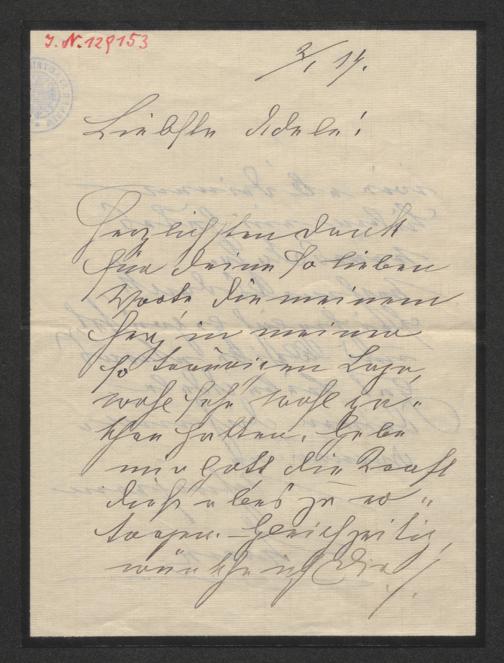 J.N.129153
2/1 14.
Liebste Adele!
Herzlichsten Dank
für deine so lieben
Worte die meinem
Herz in meiner
so traurigen Lage,
wohl sehr wohl ge-
than hatten. Gebe
mir Gott die Kraft
dies alles zu er-
tragen. – Gleichzeitig
wünsche ich Dir